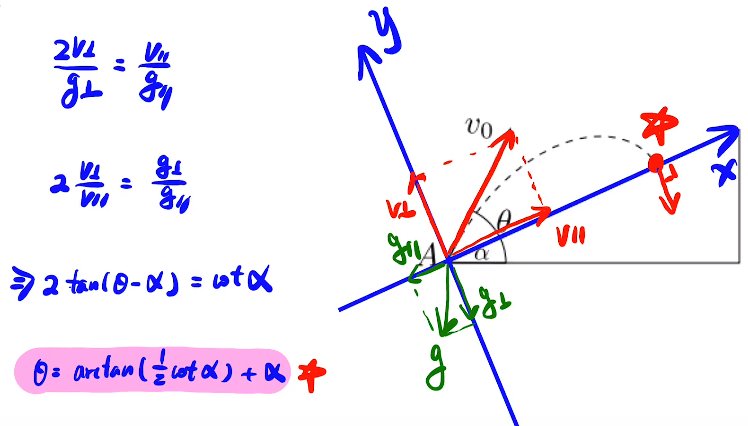 2v⊥/g⊥ = v∥/g∥
2 v⊥/v∥ = g⊥/g∥
⇒ 2 tan(θ-α) = cotα
θ = arctan(½cotα) + α
y
v₀
x
v⊥
θ
v∥
g∥
A
α
g⊥
g